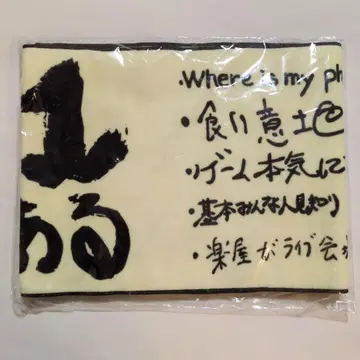 ・Where is my ph
・食い意地
・ゲーム本気
・基本みんな人見知り
・楽屋がライブ会
ある